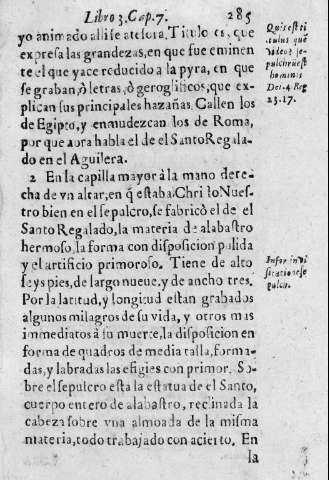 Libro 3. Cap. 7. 285
yo animado alli se atesora, Titulo es, que
expresa las grandezas, en que fue eminen
te el que yace reducido a la pyra, en que
se graban, ò letras, ò geroglificos, que ex-
plican sus principales hazañas. Callen los
de Egipto, y enmudezcan los de Roma,
por que aora habla el de el Santo Regala-
do en el Aguilera.
2 En la capilla mayor à la mano dere-
cha de vn altar, en q̃ estaba Christo Nues-
tro bien en el sepulcro, se fabricò el de el
Santo Regalado, la materia de alabastro
hermoso, la forma con disposicion pulida
y el artificio primoroso. Tiene de alto
seys pies, de largo nueue, y de ancho tres.
Por la latitud, y longitud estan grabados
algunos milagros de su vida, y otros mas
immediatos à su muerte, la disposicion en
forma de quadros de media talla, forma-
das, y labradas las efigies con primor. So-
bre el sepulcro esta la estatua de el Santo,
cuerpo entero de alabastro, reclinada la
cabeza sobre vna almoada de la misma
materia, todo trabajado con acierto. En
la
Quis est ti
tulus quẽ
video? se-
pulchrũ est
hominis
Dei. 4. Reg
23. 17.
Infor. in Vi
sitatione se
pulcri.